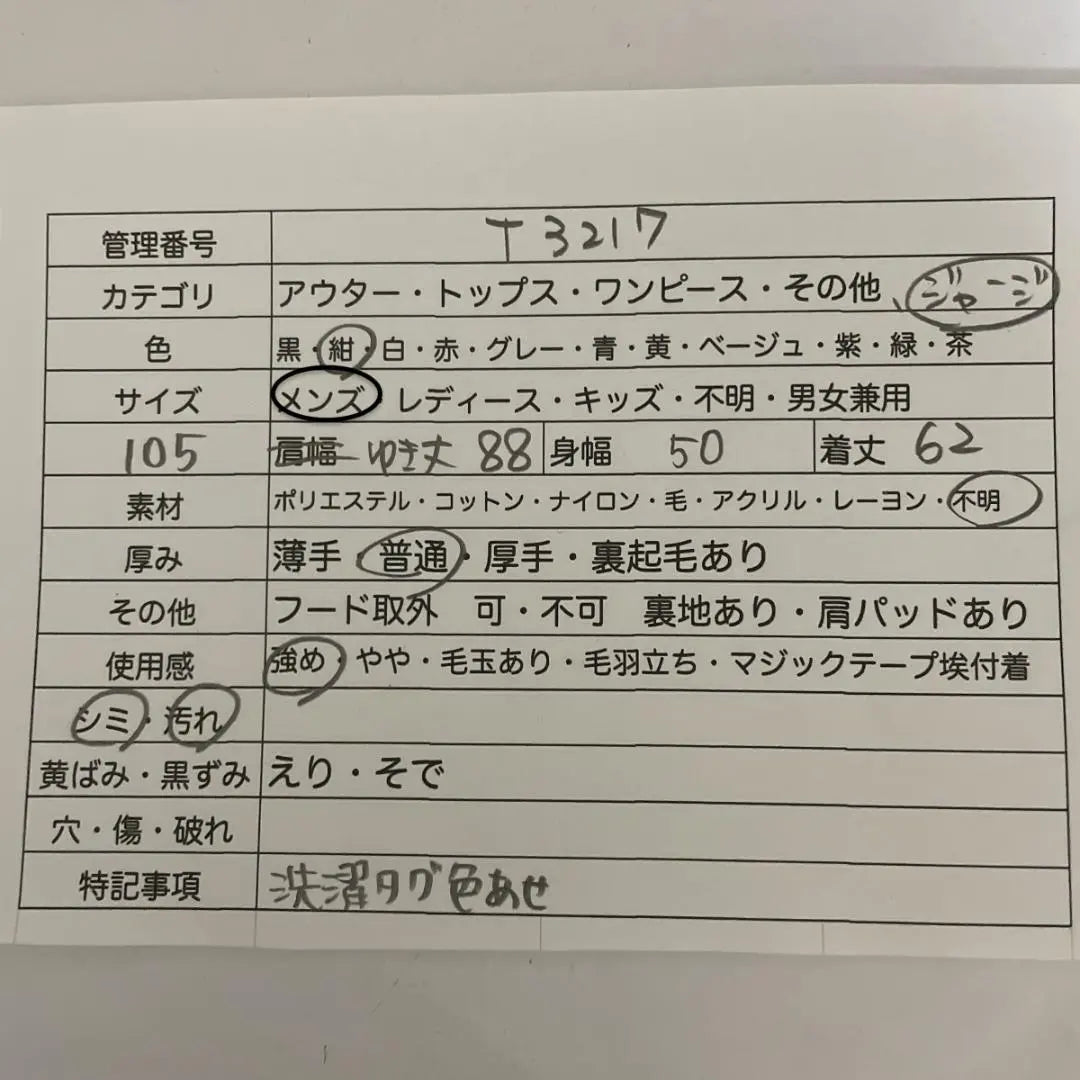 管理番号 T3217
カテゴリ アウター・トップス・ワンピース・その他、ジャージ
色 黒・紺・白・赤・グレー・青・黄・ベージュ・紫・緑・茶
サイズ メンズ レディース・キッズ・不明・男女兼用
105 肩幅 ゆき丈 88 身幅 50 着丈 62
素材 ポリエステル・コットン・ナイロン・毛・アクリル・レーヨン・不明
厚み 薄手・普通・厚手・裏起毛あり
その他 フード取外 可・不可 裏地あり・肩パッドあり
使用感 強め・やや・毛玉あり・毛羽立ち・マジックテープ埃付着
シミ・汚れ
黄ばみ・黒ずみ えり・そで
穴・傷・破れ
特記事項 洗濯タグ色あせ